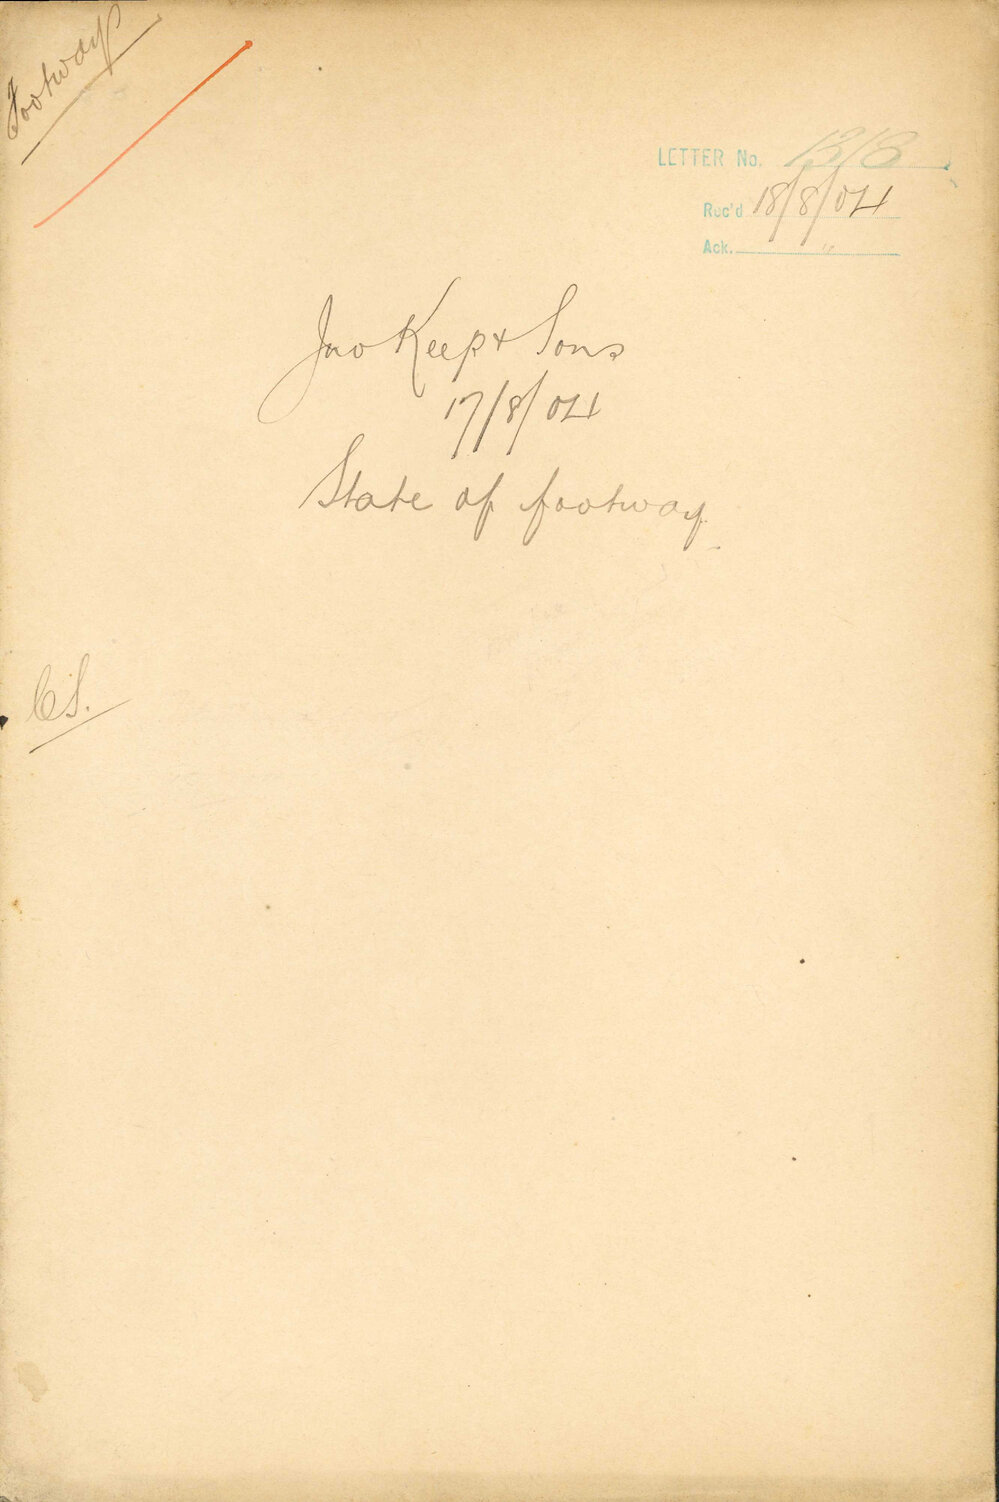 Footways
LETTER No. 1318
Rec'd 18/8/04
Ack. "
Jno Keep & Sons
17/8/04
State of footway
CS.